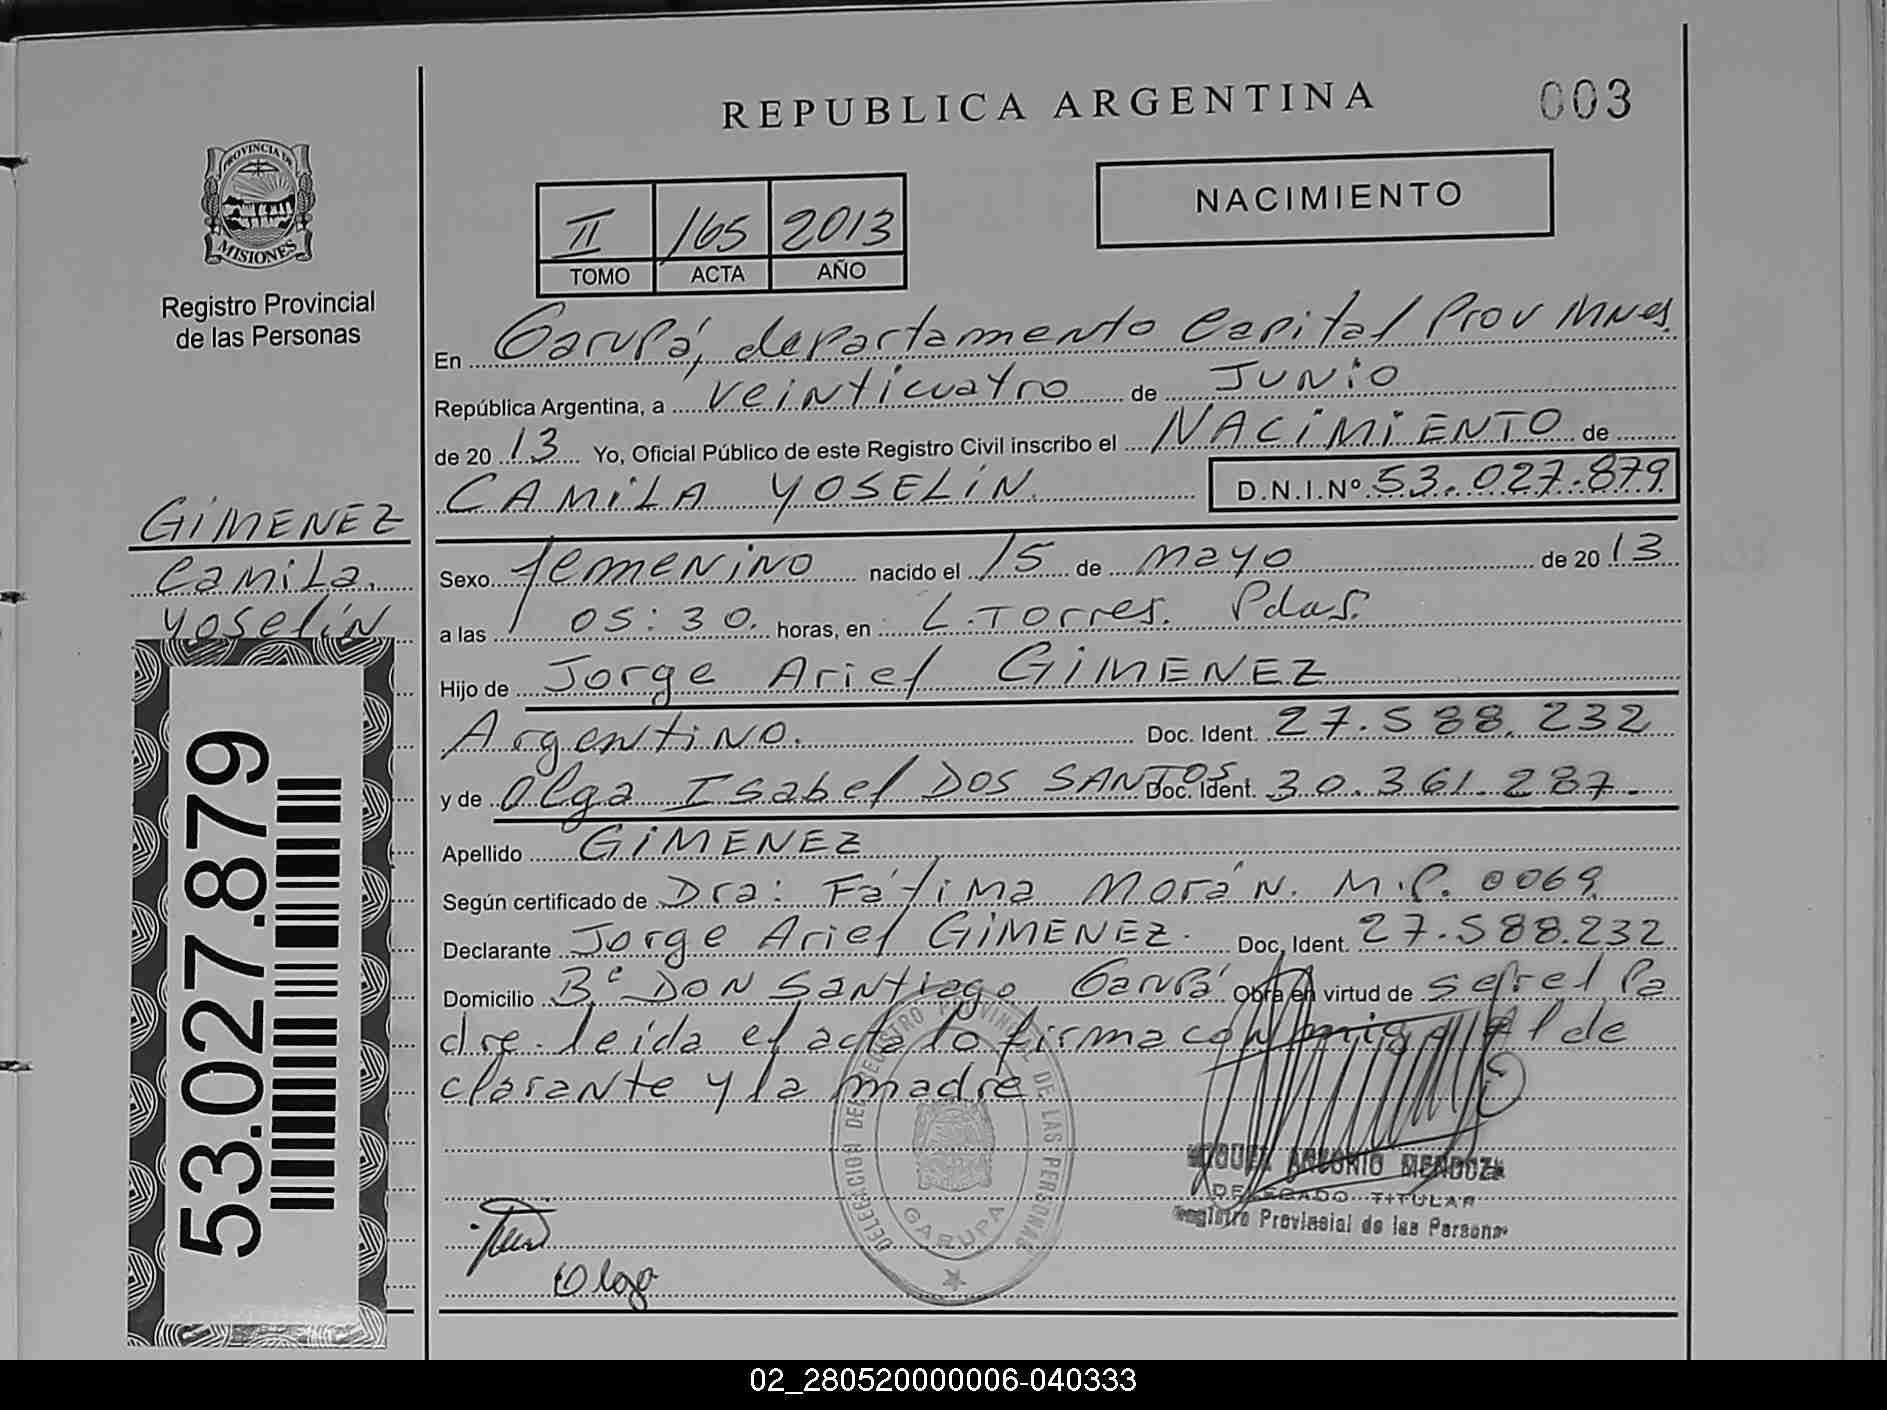 REPUBLICA ARGENTINA
003
PROVINCIA DE
MISIONES
Registro Provincial
de las Personas
NACIMIENTO
II 165 2013
TOMO ACTA AÑO
En Garupá, departamento Capital Prov Mnes.
República Argentina, a veinticuatro de JUNiO
de 2013 Yo, Oficial Público de este Registro Civil inscribo el NACiMiENTO de
CAMiLA YOSELíN D.N.I.Nº 53.027.879
GiMENEZ
CamiLa.
Yoselín
53.027.879
Sexo femenino nacido el 15 de mayo de 2013
a las 05:30. horas, en L. Torres. Pdas.
Hijo de Jorge Ariel GiMENEZ
Argentino. Doc. Ident. 27.588.232
y de Olga Isabel DOS SANTOS Doc. Ident. 30.361.287.
Apellido GiMENEZ
Según certificado de Dra: Fátima Morán. M.P. 0069
Declarante Jorge Ariel GiMENEZ. Doc. Ident. 27.588.232
Domicilio Bº DON Santiago Garupá Obra en virtud de ser el Pa
dre. leida el acta lo firma conmigo el de
clarante y la madre
DELEGACION DEL REGISTRO PROVINCIAL DE LAS PERSONAS
GARUPA
MIGUEL ANTONIO MENDOZA
DELEGADO TITULAR
Registro Provincial de las Personas
Olga
02_280520000006-040333